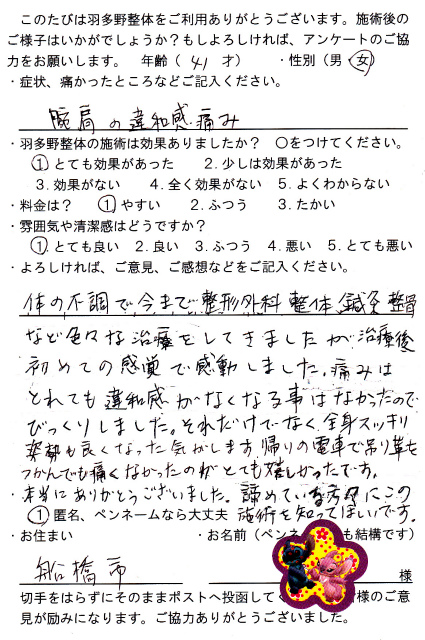 このたびは羽多野整体をご利用ありがとうございます。施術後の
ご様子はいかがでしょうか？もしよろしければ、アンケートのご協
力をお願いします。　年齢（ 41 才）　・性別（男 女）
・症状、痛かったところなどご記入ください。
腕肩の違和感 痛み
・羽多野整体の施術は効果ありましたか？　〇をつけてください。
①とても効果があった　２.少しは効果があった
３.効果がない　４.全く効果がない　５.よくわからない
・料金は？　①やすい　２.ふつう　３.たかい
・雰囲気や清潔感はどうですか？
①とても良い　２.良い　３.ふつう　４.悪い　５.とても悪い
・よろしければ、ご意見、ご感想などをご記入ください。
体の不調で今まで整形外科 整体 鍼灸 整骨
など色々な治療をしてきましたが治療後
初めての感覚で感動しました。痛みは
とれても違和感がなくなる事はなかったので
びっくりしました。それだけでなく、全身スッキリ
姿勢も良くなった気がします。帰りの電車で吊り革を
つかんでも痛くなかったのがとても嬉しかったです。
・本当にありがとうございました。諦めている方々にこの
①匿名、ペンネームなら大丈夫 施術を知ってほしいです。
・お住まい　・お名前（ペンネ も結構です）
船橋市
様
切手をはらずにそのままポストへ投函してく 様のご意
見が励みになります。ご協力ありがとうございました。